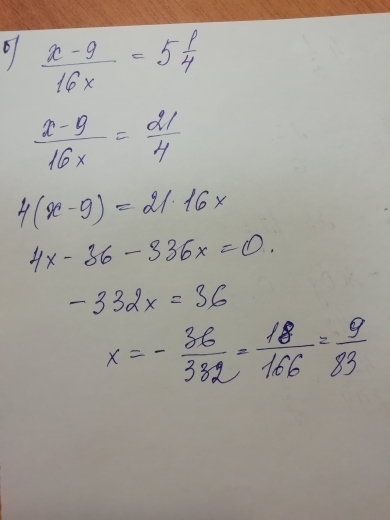 б) (x-9)/(16x) = 5 1/4
(x-9)/(16x) = 21/4
4(x-9) = 21·16x
4x - 36 - 336x = 0.
-332x = 36
x = - 36/332 = 18/166 = 9/83